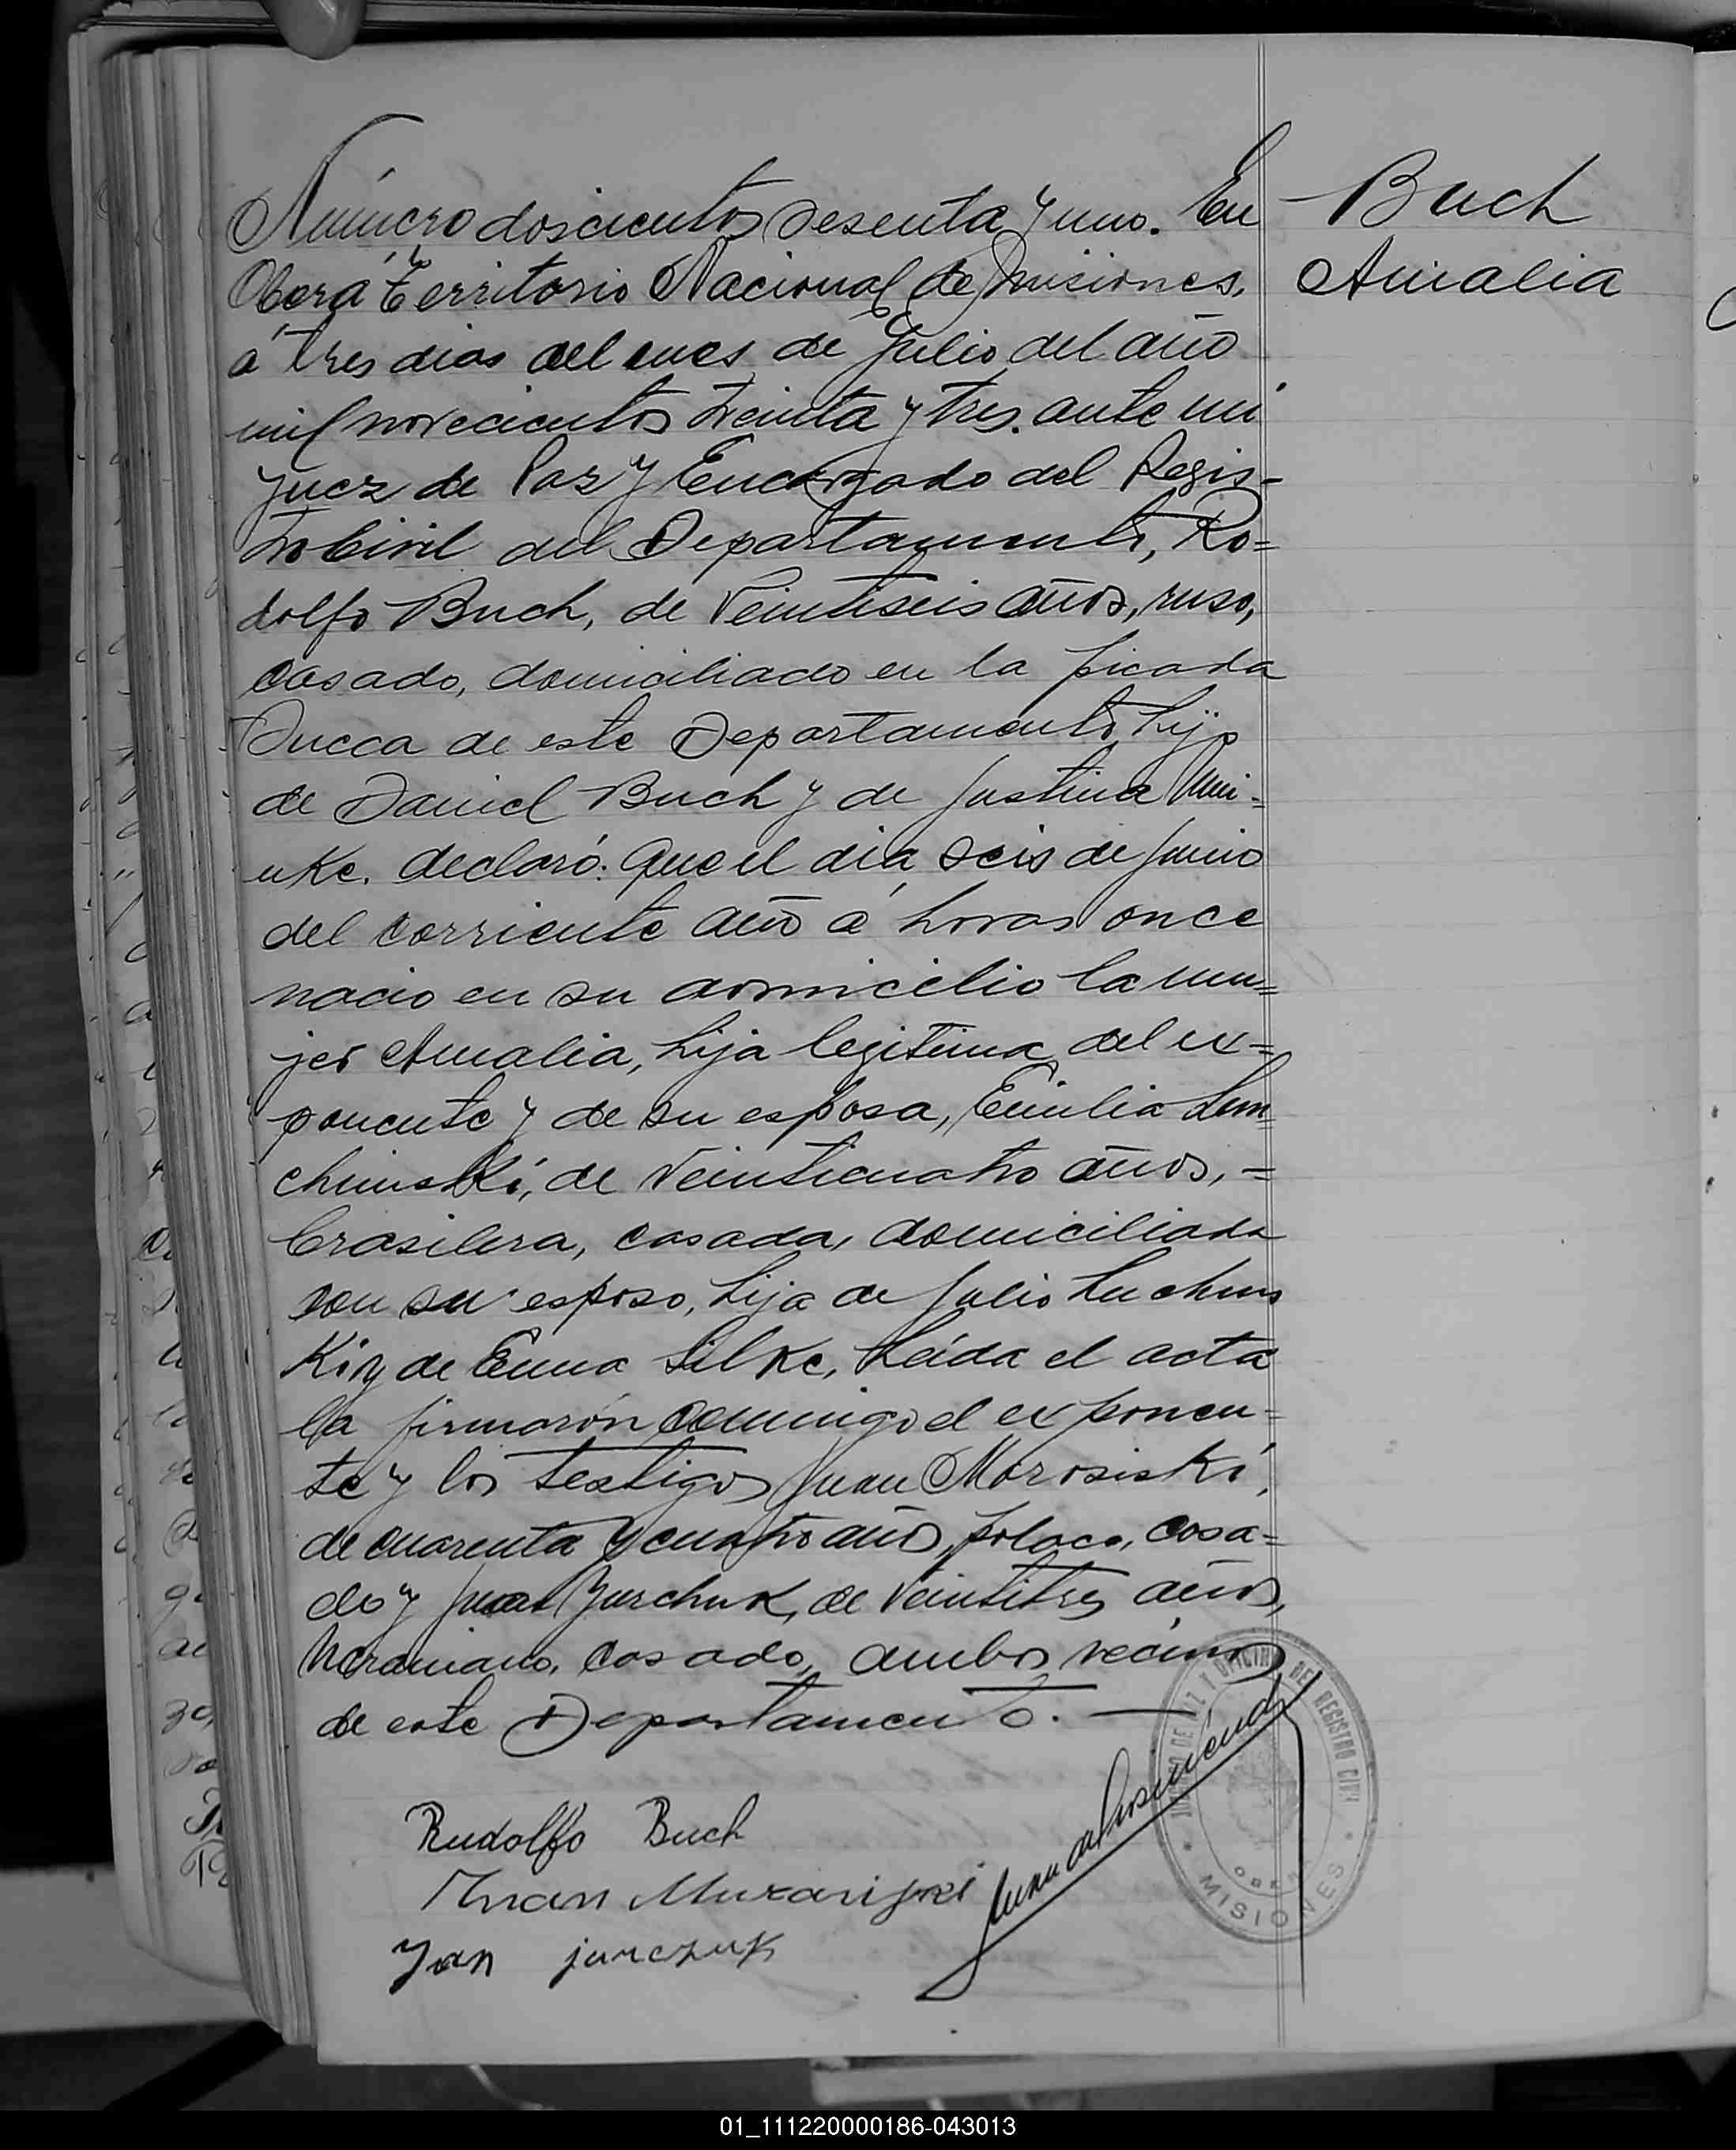 Número doscientos sesenta y uno. En
Oberá Territorio Nacional de Misiones,
á tres dias del mes de Julio del año
mil novecientos treinta y tres. ante mi
Juez de Paz y Encargado del Regis-
tro Civil del Departamento, Ro=
dolfo Buch, de Veintiseis años, ruso,
casado, domiciliado en la picada
de este Departamento hijo
de Daniel Buch y de Justina Mui-
nke. declaró: Que el dia seis de Junio
del corriente año a horas once
nacio en su domicilio la mu=
jer Amalia, hija legitima del ex=
ponente y de su esposa, Emilia Lem=
chinski, de Veinticuatro años, =
brasilera, casada, domiciliada
con su esposo, hija de Julio Luchins
Ki y de Emma Silke, Leída el acta
la firmarón conmigo el exponen=
te y los testigos Juan Morosiski,
de cuarenta y cuatro años, polaco, casa=
do y Juan Jurchuk, de veintitres años,
Ucraniano, casado, ambos vecinos
de este Departamento. —
Rudolfo Buch
Juan
Jan jurczuk
Buch
Amalia
JUZGADO DE PAZ Y OFICINA DEL REGISTRO CIVIL
OBERA
MISIONES
01_111220000186-043013